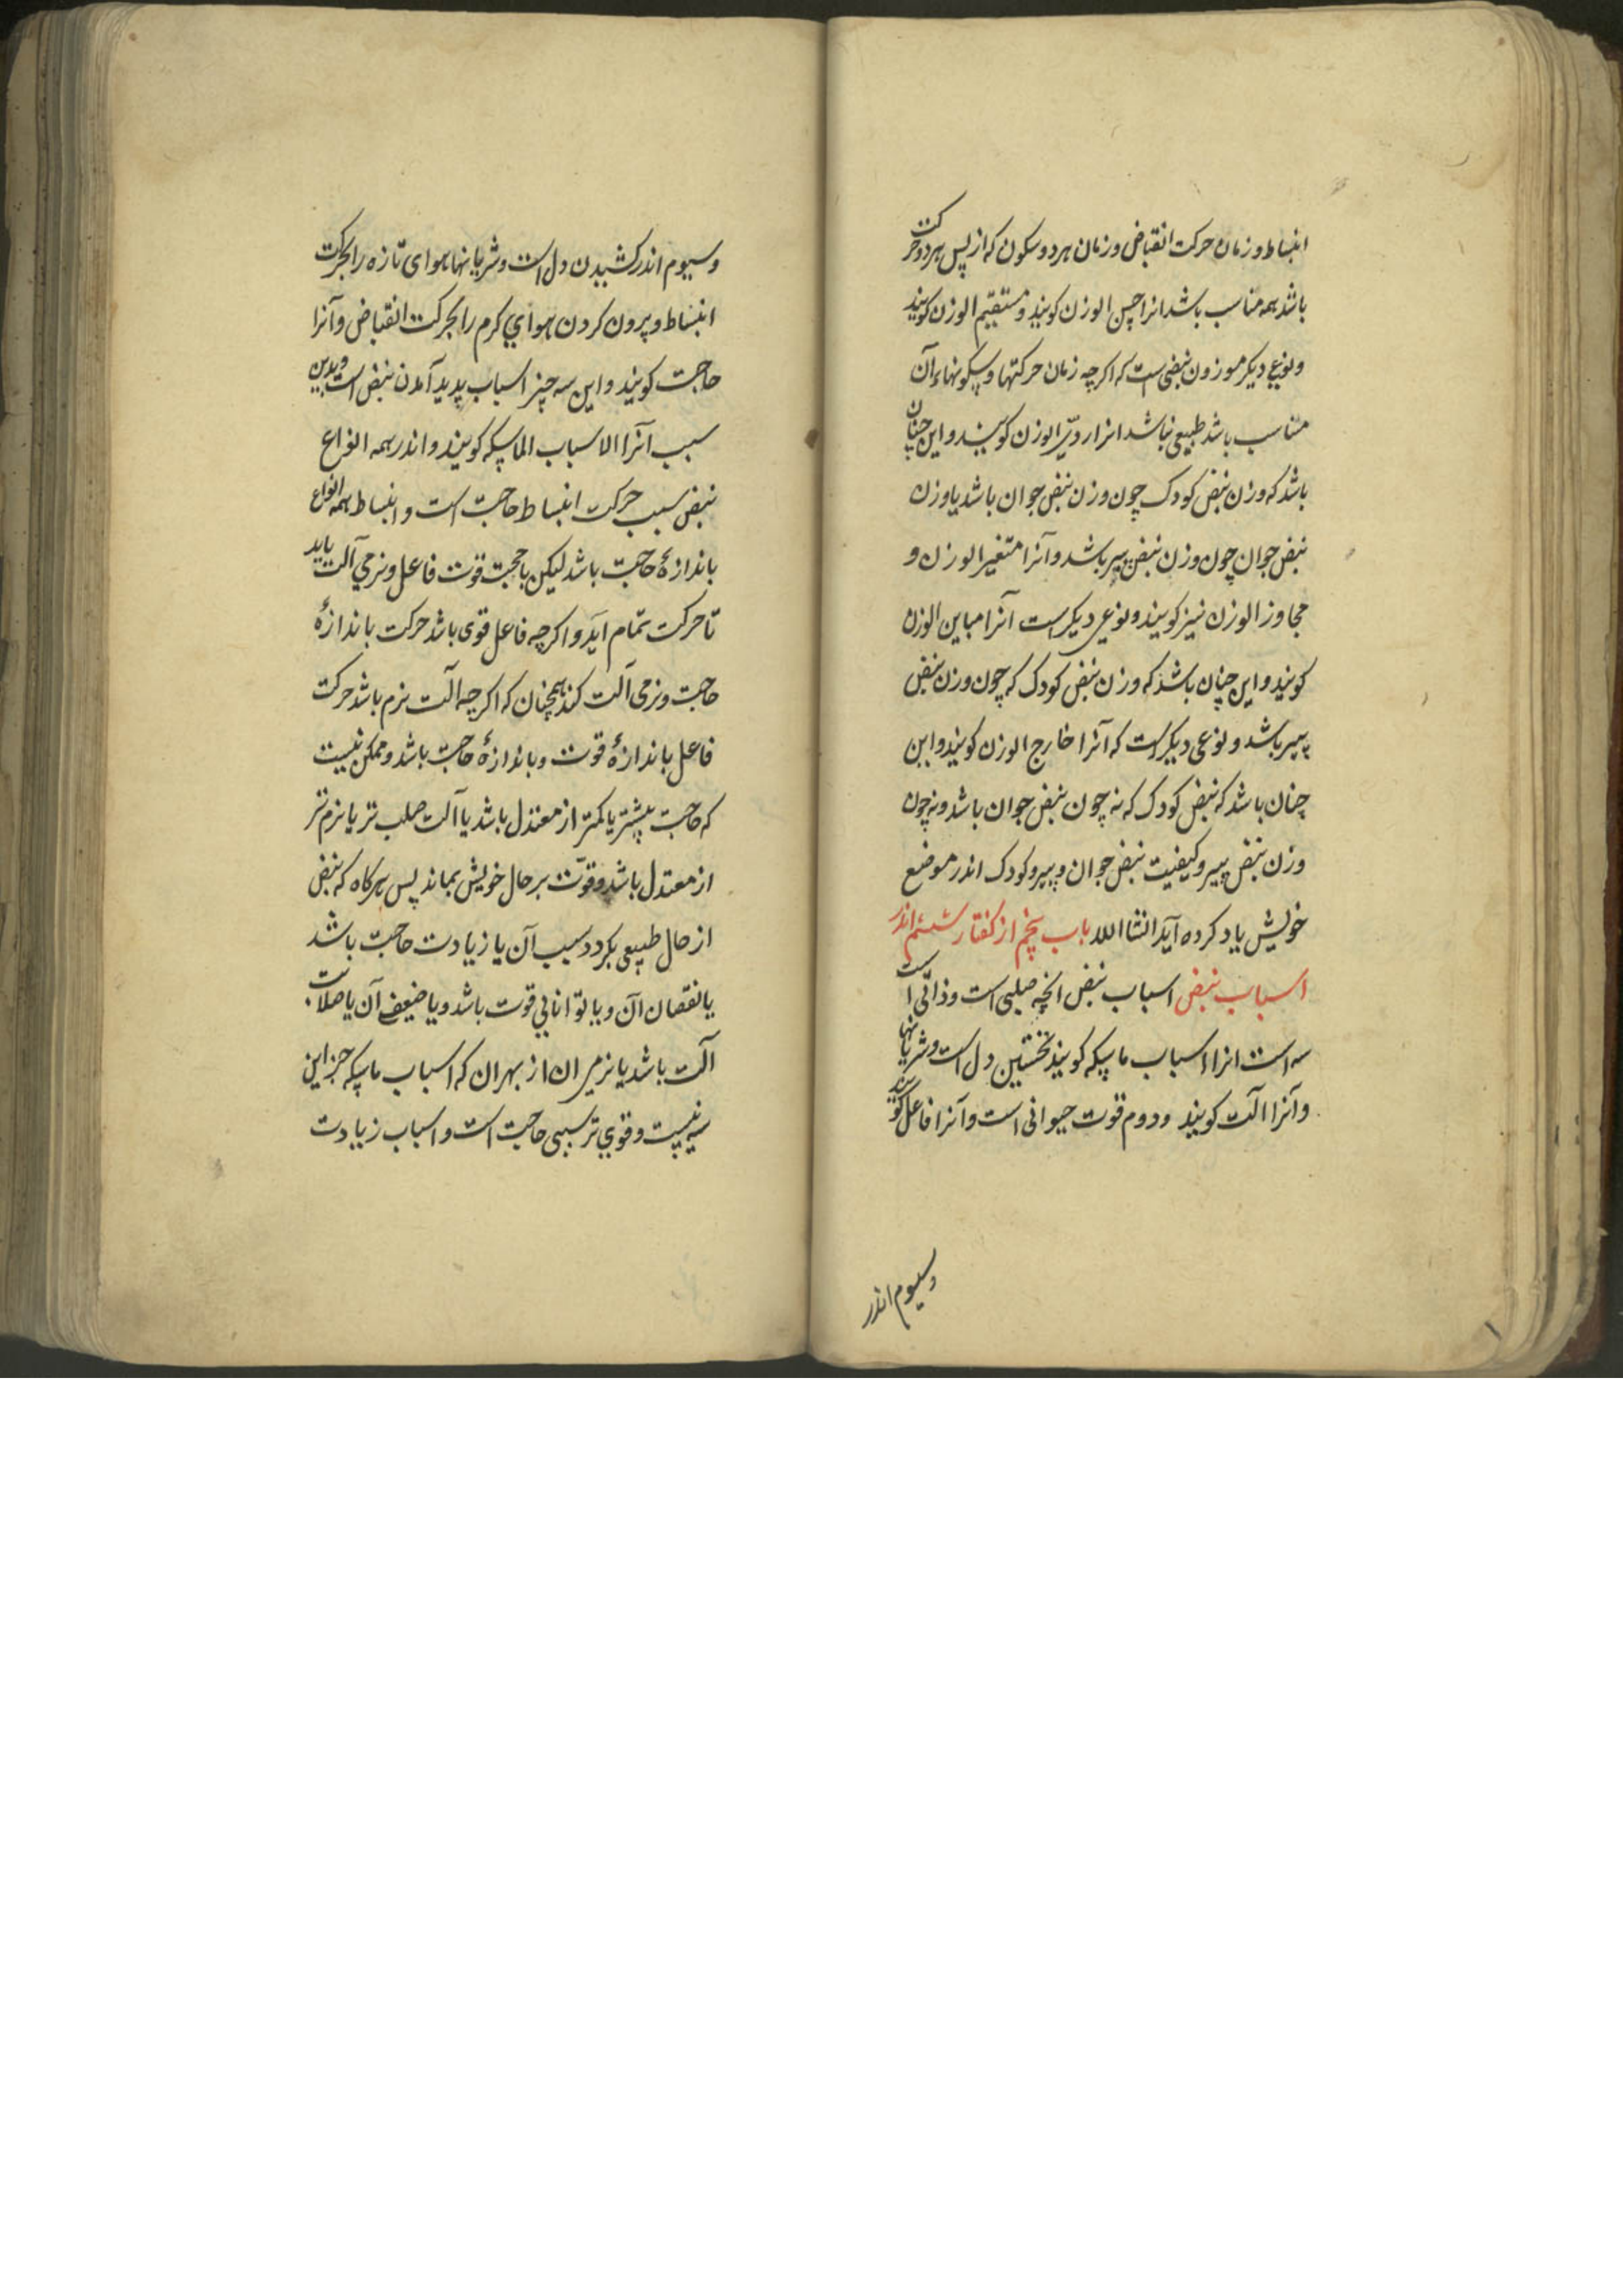 انبساط و زمان حرکت انقباض و زمان هر دو سکون که از پس هر دو حرکت
باشد همه مناسب باشد انرا حسن الوزن کویند و مستقیم الوزن کویند
و نوع دیکر موزون نبضی است که اکرچه زمان حرکتها و سکونهاء آن
متناسب باشد طبیعی نباشد انرا ردیّ الوزن کویند و این چنان
باشد که وزن نبض کودک چون وزن نبض جوان باشد یا وزن
نبض جوان چون وزن نبض پیر باشد و آنرا متغیر الوزن و
مجاوز الوزن نیز کویند و نوعی دیکر است آنرا مباین الوزن
کویند و این چنان باشد که وزن نبض کودک که چون وزن نبض
پیر باشد و نوعی دیکر است که آنرا خارج الوزن کویند و این
چنان باشد که نبض کودک که نه چون نبض جوان باشد و نه چون
وزن نبض پیر و کیفیت نبض جوان و پیر و کودک اندر موضع
خویش یاد کرده آید انشا الله باب پنجم از کفتار ششم اندر
اسباب نبض اسباب نبض انچه صلبی است و ذاتی است
سه است انرا اسباب ماسکه کویند نخستین دل است و شریانها
و آنرا الت کویند و دوم قوت حیوانی است و آنرا فاعل کویند
وسیوم اندر
و سیوم اندر کشیدن دل است و شریانها هوای تازه را بحرکت
انبساط و برون کردن هوای کرم را بحرکت انقباض و آنرا
حاجت کویند و این سه چیز اسباب پدید آمدن نبض است و بدین
سبب آنرا الاسباب الماسکه کویند و اندر همه انواع
نبض سبب حرکت انبساط حاجت است و انبساط همه انواع
باندازهٔ حاجت باشد لیکن با حجت قوت فاعل و نرمی آلت باید
تا حرکت تمام اید و اکرچه فاعل قوی باشد حرکت باندازهٔ
حاجت و نرمی آلت کند همچنان که اکرچه الت نرم باشد حرکت
فاعل باندازهٔ قوت و باندازهٔ حاجت باشد و ممکن نیست
که حاجت بیشتر یا کمتر از معتدل باشد یا آلت صلب تر یا نرم تر
از معتدل باشد و قوّت بر حال خویش بماند پس هرکاه که نبض
از حال طبیعی بکردد سبب آن یا زیادت حاجت باشد
یا نقصان آن و یا توانایی قوت باشد و یا ضعیف آن یا صلابت
آلت باشد یا نرمی ان از بهر ان که اسباب ماسکه جز این
سه نیست و قوی تر سببی حاجت است و اسباب زیادت